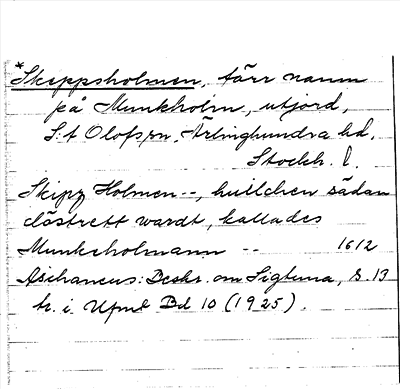 *Skeppsholmen, förr namn
på Munkholm, utjord,
S:t Olofs sn, Ärlinghundra hd,
Stockh. l.
Skipz Holmen --, huilchen sädan
clöstrett wardt, kallades
Munkeholmann -- 1612
Aschaneus: Beskr. om Sigtuna, s. 13
tr. i UFmt Bd 10 (1925).